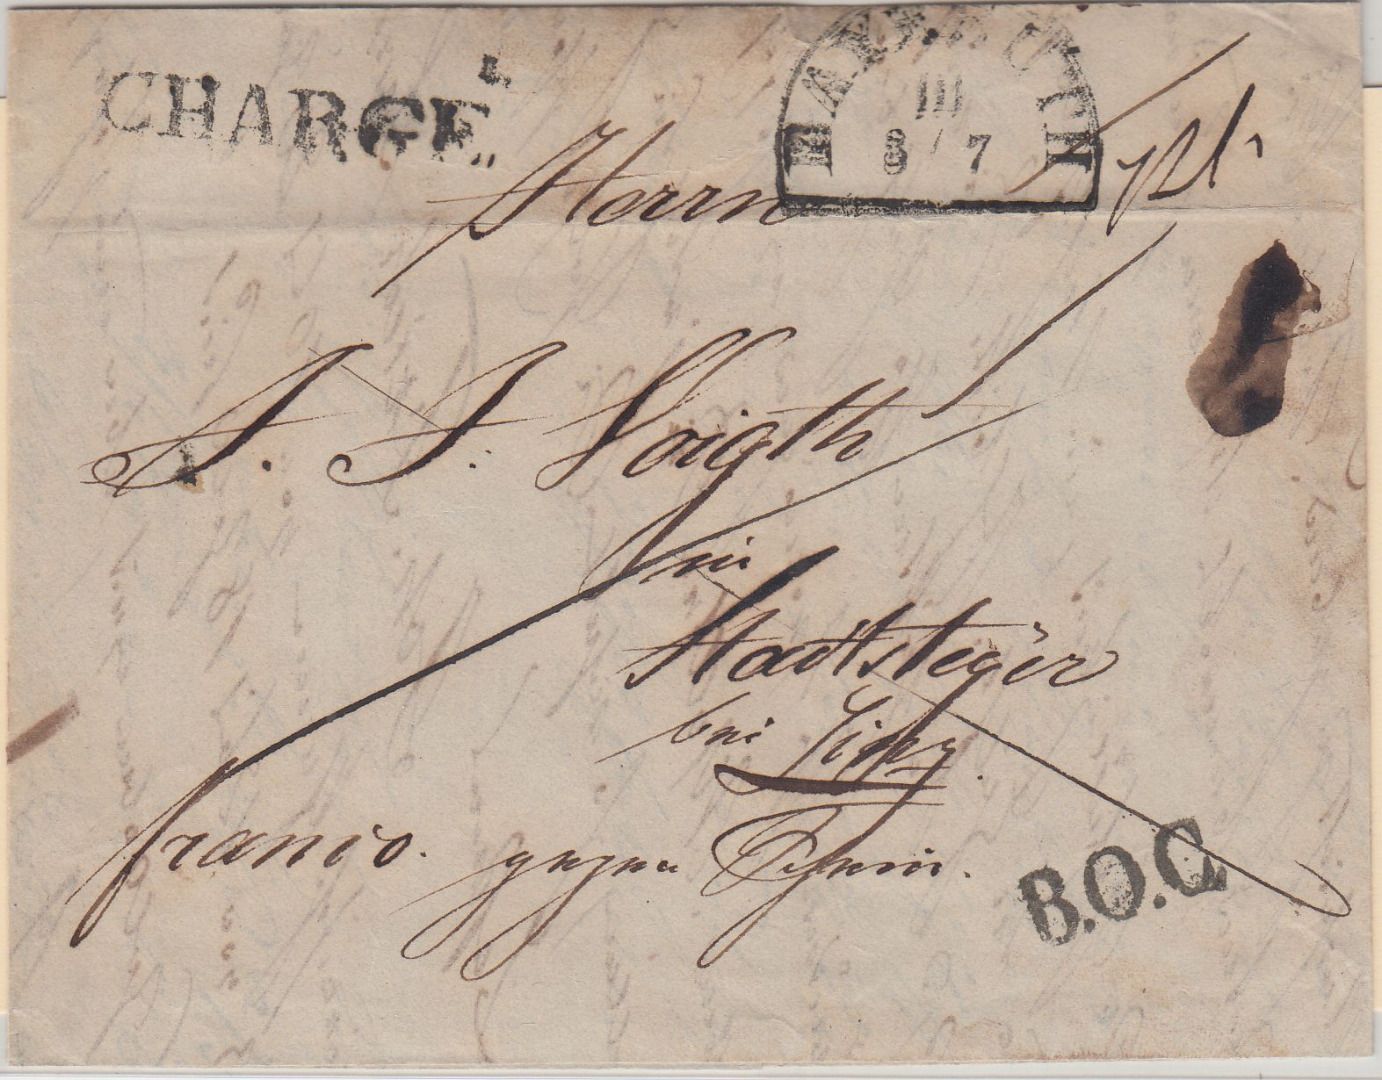 CHARGÉ.
BAYREUTH
III
8 / 7
Herrn
J. J. Voigth
in
Stadtsteyer
bei Linz.
franco. gegen Schein.
B.O.C.